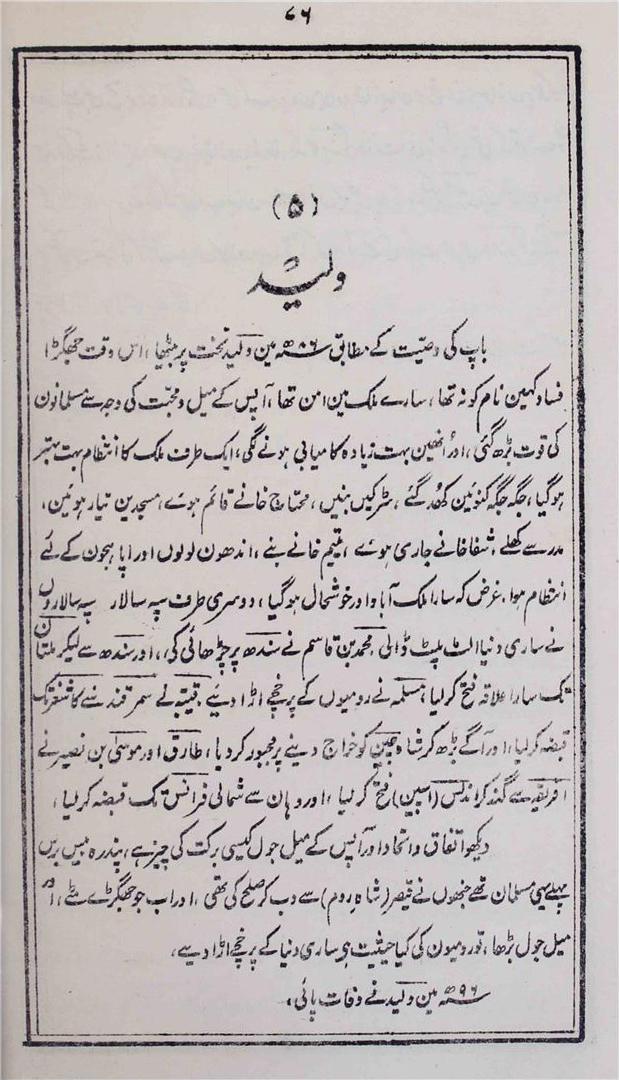 ۶۶
(۵)
ولید
باپ کی وصیت کے مطابق ۸۶ھ مین ولید تخت پر بیٹھا، اس وقت جھگڑا
فساد کہین نام کو نہ تھا، سارے ملک مین امن تھا، آپس کے میل و محبت کی وجہ سے مسلمانون
کی قوت بڑھ گئی، اور انھین بہت زیادہ کامیابی ہونے لگی، ایک طرف ملک کا انتظام بہت بہتر
ہوگیا، جگہ جگہ کنوئین کھد گئے، سڑکیں بنیں، محتاج خانے قائم ہوے، مسجدین تیار ہوئین،
مدرسے کھلے، شفاخانے جاری ہوے، یتیم خانے بنے، اندھون لولوں اور اپاہجون کے لئے
انتظام ہوا، غرض کہ سارا ملک آباد اور خوشحال ہوگیا، دوسری طرف سپہ سالار سپہ سالاروں
نے ساری دنیا الٹ پلٹ ڈالی محمد بن قاسم نے سندھ پر چڑھائی کی، اور سندھ سے لیکر ملتان
تک سارا علاقہ فتح کرلیا، مسلمہ نے رومیوں کے پرخچے اڑا دیے، قتیبہ نے سمرقند سے کاشغر تک
قبضہ کرلیا، اور آگے بڑھ کر شاہ چین کو خراج دینے پر مجبور کردیا، طارق اور موسیٰ بن نصیر نے
افریقہ سے گذر کر اندلس (اسپین) فتح کرلیا، اور وہان سے شمالی فرانس تک قبضہ کرلیا،
دیکھو اتفاق و اتحاد اور آپس کے میل جول کیسی برکت کی چیز ہے، پندرہ بیس برس
پہلے یہی مسلمان تھے جنھوں نے قیصر (شاہ روم) سے دب کر صلح کی تھی، اور اب جو جھگڑے مٹے، اور
میل جول بڑھا، تو رومیون کی کیا حیثیت ہے ساری دنیا کے پرخچے اڑا دیے،
۹۶ھ مین ولید نے وفات پائی،